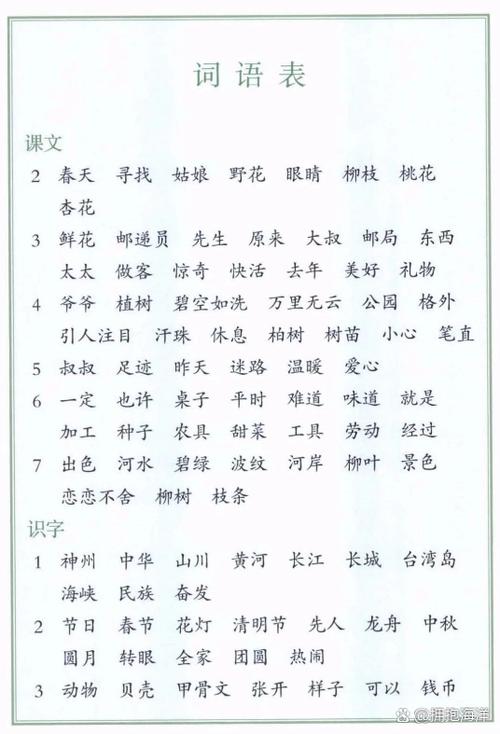 词语表
课文
2 春天 寻找 姑娘 野花 眼睛 柳枝 桃花
杏花
3 鲜花 邮递员 先生 原来 大叔 邮局 东西
太太 做客 惊奇 快活 去年 美好 礼物
4 爷爷 植树 碧空如洗 万里无云 公园 格外
引人注目 汗珠 休息 柏树 树苗 小心 笔直
5 叔叔 足迹 昨天 迷路 温暖 爱心
6 一定 也许 桌子 平时 难道 味道 就是
加工 种子 农具 甜菜 工具 劳动 经过
7 出色 河水 碧绿 波纹 河岸 柳叶 景色
恋恋不舍 柳树 枝条
识字
1 神州 中华 山川 黄河 长江 长城 台湾岛
海峡 民族 奋发
2 节日 春节 花灯 清明节 先人 龙舟 中秋
圆月 转眼 全家 团圆 热闹
3 动物 贝壳 甲骨文 张开 样子 可以 钱币
@拥抱海洋